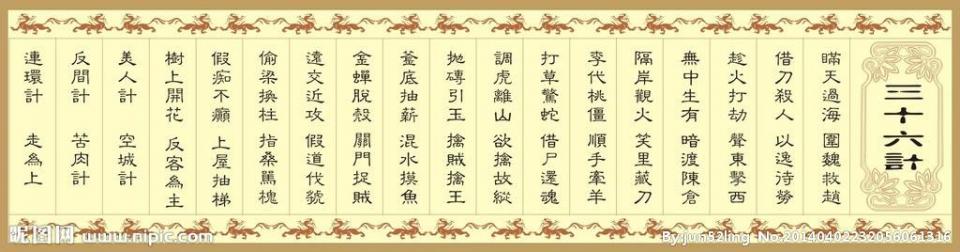 三十六計
瞞天過海 圍魏救趙
借刀殺人 以逸待勞
趁火打劫 聲東擊西
無中生有 暗渡陳倉
隔岸觀火 笑里藏刀
李代桃僵 順手牽羊
打草驚蛇 借尸還魂
調虎離山 欲擒故縱
拋磚引玉 擒賊擒王
釜底抽薪 混水摸魚
金蟬脫殼 關門捉賊
遠交近攻 假道伐虢
偷梁換柱 指桑罵槐
假痴不癲 上屋抽梯
樹上開花 反客為主
美人計 空城計
反間計 苦肉計
連環計 走為上
昵图网 www.nipic.com
By:jun52ling No:20140402232056061316